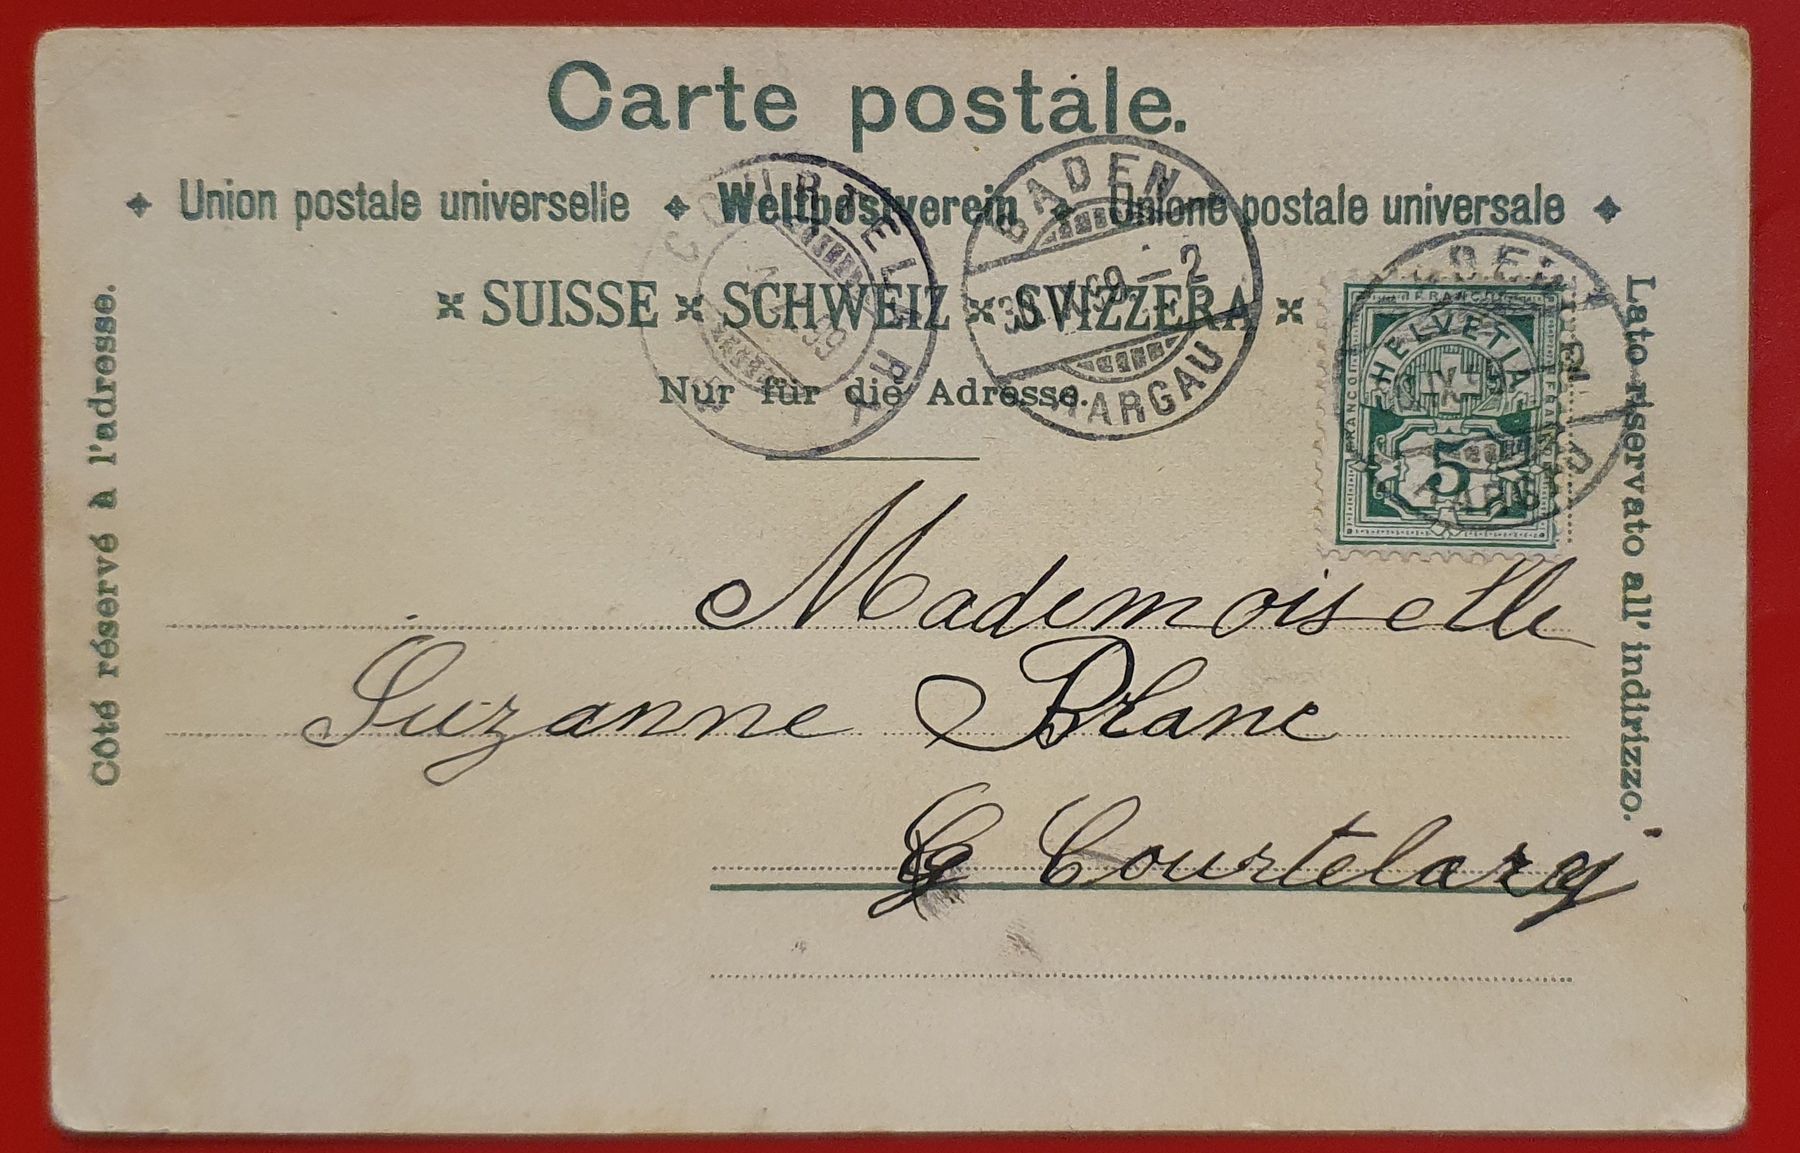 Carte postale.
Union postale universelle Weltpostverein Unione postale universale
SUISSE SCHWEIZ SVIZZERA
Nur für die Adresse.
Côté réservé à l'adresse.
Lato riservato all' indirizzo.
COURTELARY
99
BADEN
30. IX. 99 – 2
AARGAU
BADEN
IX
AARGAU
FRANCO
HELVETIA
FRANCO
FRANCO
5
Mademoiselle
Suzanne Blanc
Courtelary